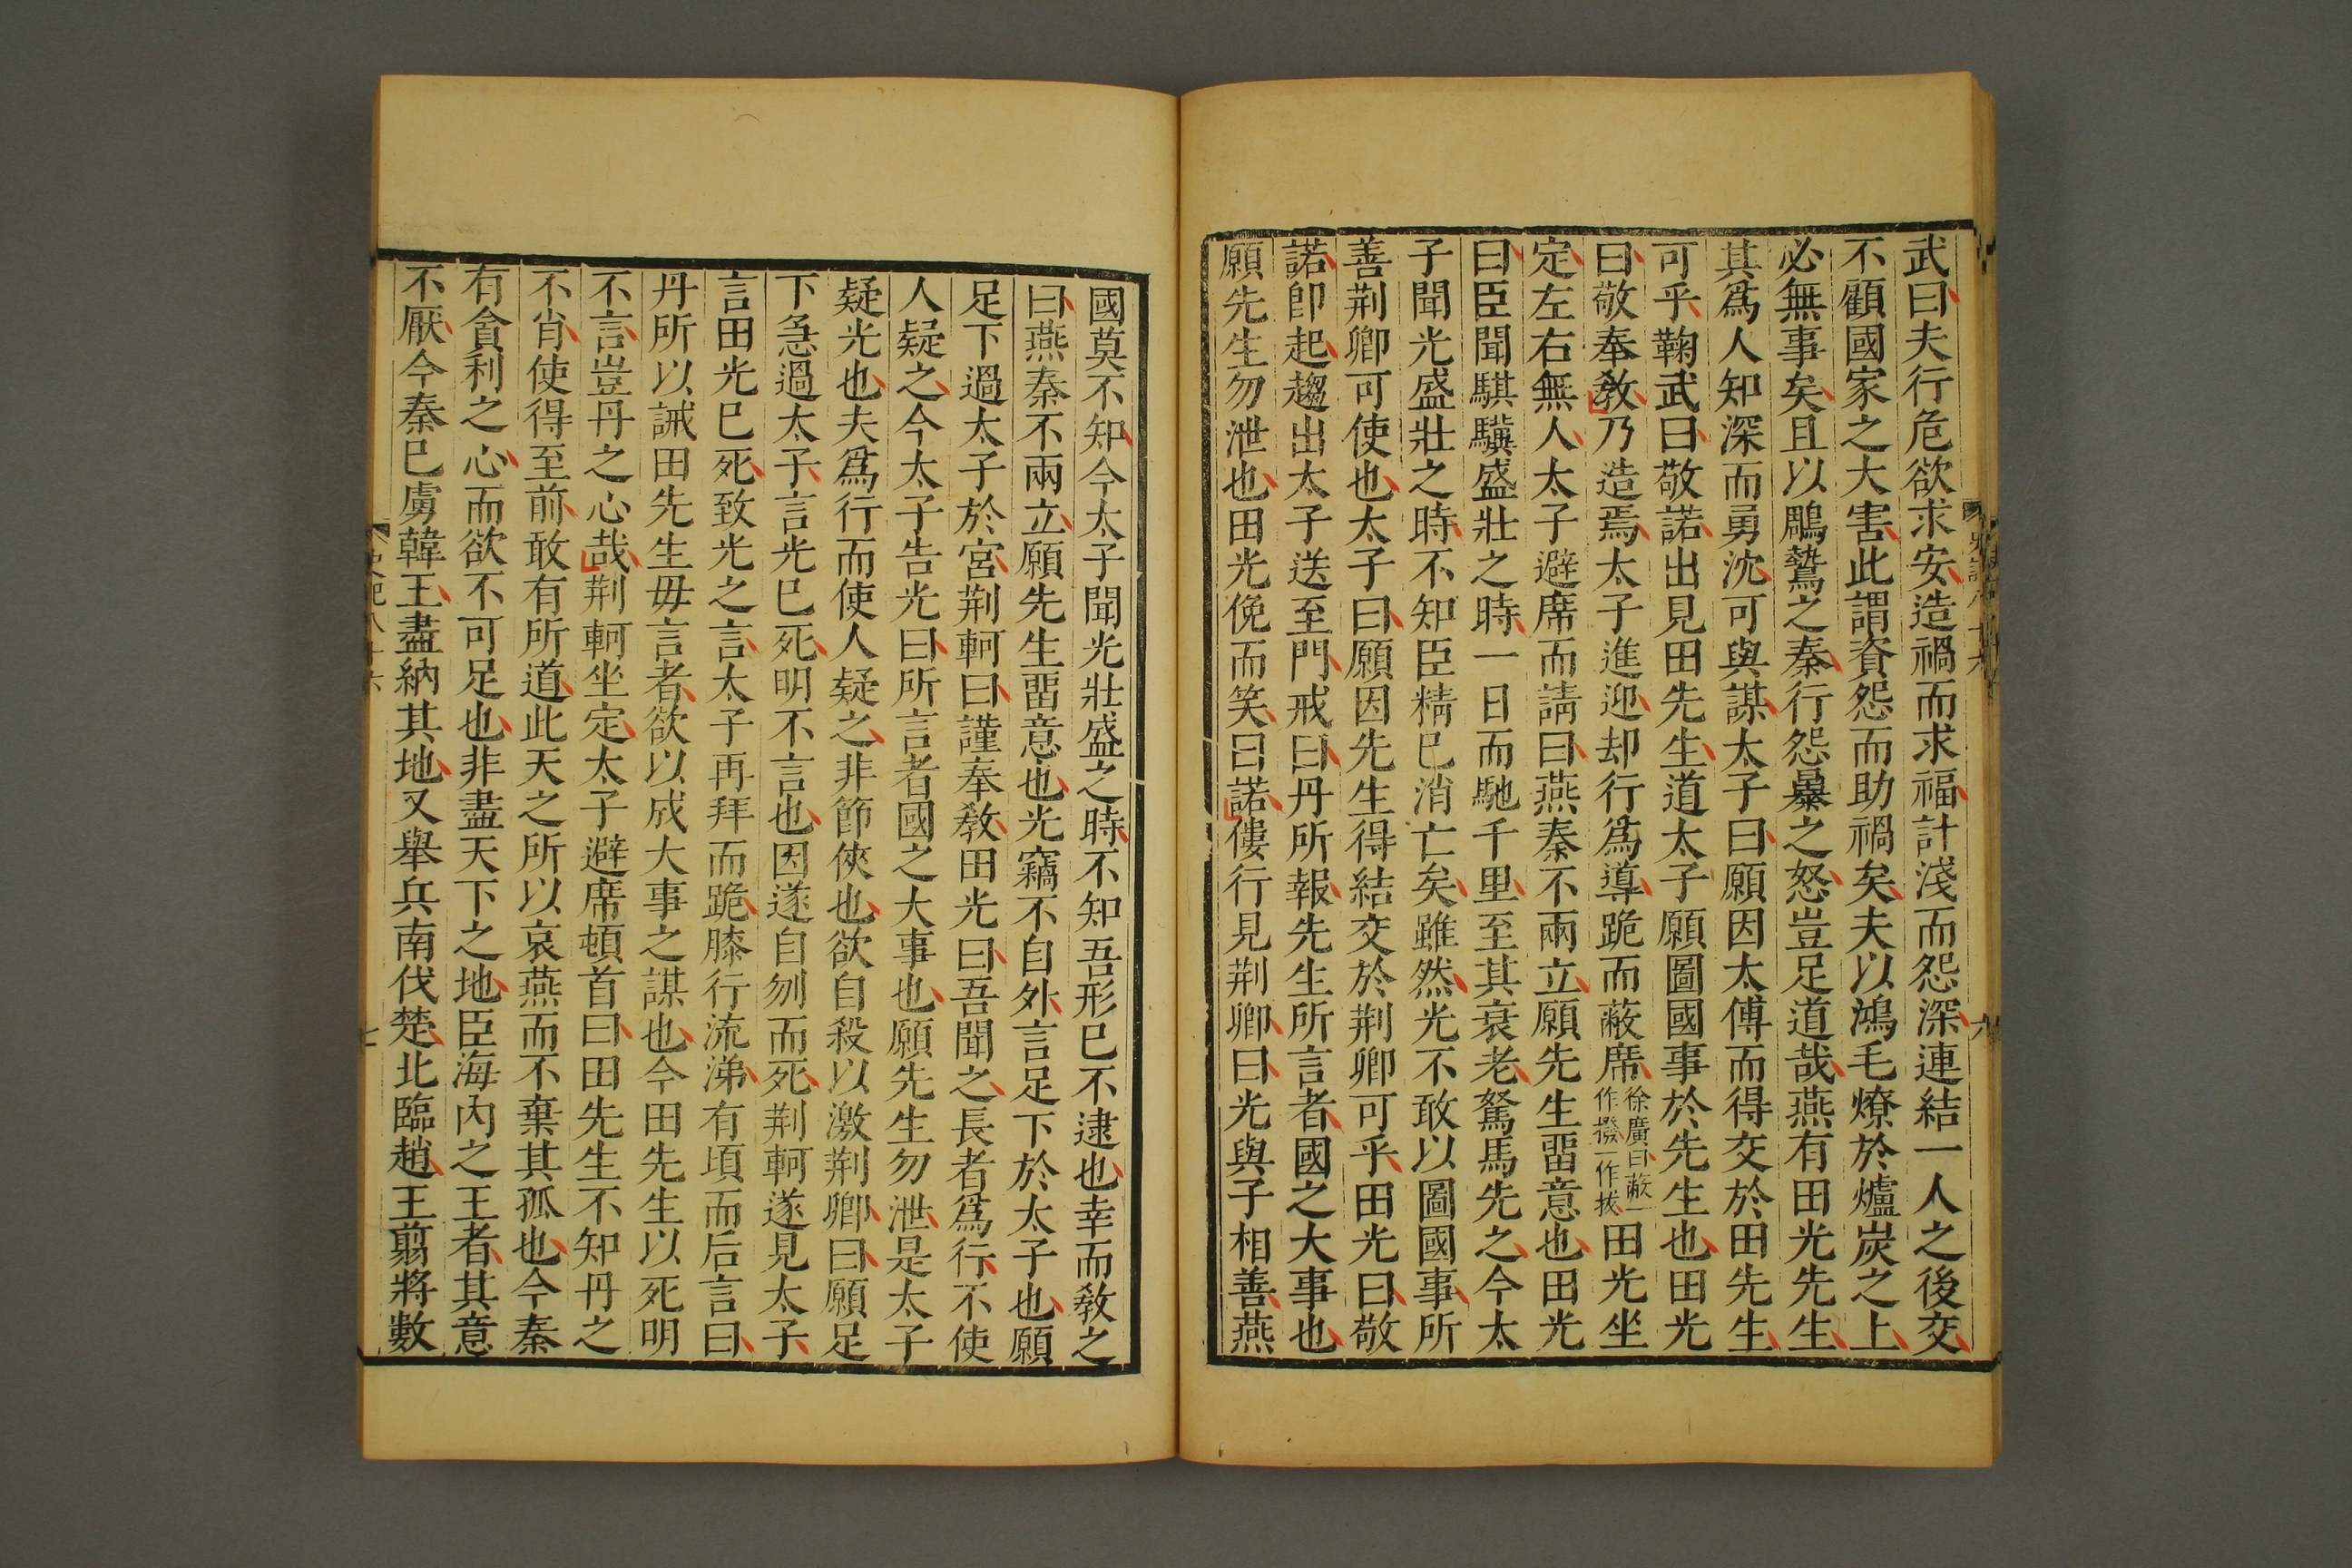 武曰夫行危欲求安造禍而求福計淺而怨深連結一人之後交
不顧國家之大害此謂資怨而助禍矣夫以鴻毛燎於爐炭之上
必無事矣且以鵰鷙之秦行怨暴之怒豈足道哉燕有田光先生
其爲人知深而勇沈可與謀太子曰願因太傅而得交於田先生
可乎鞠武曰敬諾出見田先生道太子願圖國事於先生也田光
曰敬奉教乃造焉太子進迎却行爲導跪而蔽席徐廣曰蔽一作撥一作拔田光坐
定左右無人太子避席而請曰燕秦不兩立願先生畱意也田光
曰臣聞騏驥盛壯之時一日而馳千里至其衰老駑馬先之今太
子聞光盛壯之時不知臣精已消亡矣雖然光不敢以圖國事所
善荆卿可使也太子曰願因先生得結交於荆卿可乎田光曰敬
諾卽起趨出太子送至門戒曰丹所報先生所言者國之大事也
願先生勿泄也田光俛而笑曰諾僂行見荆卿曰光與子相善燕
史記八十六
六
國莫不知今太子聞光壯盛之時不知吾形已不逮也幸而教之
曰燕秦不兩立願先生畱意也光竊不自外言足下於太子也願
足下過太子於宮荆軻曰謹奉教田光曰吾聞之長者爲行不使
人疑之今太子告光曰所言者國之大事也願先生勿泄是太子
疑光也夫爲行而使人疑之非節俠也欲自殺以激荆卿曰願足
下急過太子言光已死明不言也因遂自刎而死荆軻遂見太子
言田光已死致光之言太子再拜而跪膝行流涕有頃而后言曰
丹所以誡田先生毋言者欲以成大事之謀也今田先生以死明
不言豈丹之心哉荆軻坐定太子避席頓首曰田先生不知丹之
不肖使得至前敢有所道此天之所以哀燕而不棄其孤也今秦
有貪利之心而欲不可足也非盡天下之地臣海內之王者其意
不厭今秦已虜韓王盡納其地又舉兵南伐楚北臨趙王翦將數
史記八十六
七